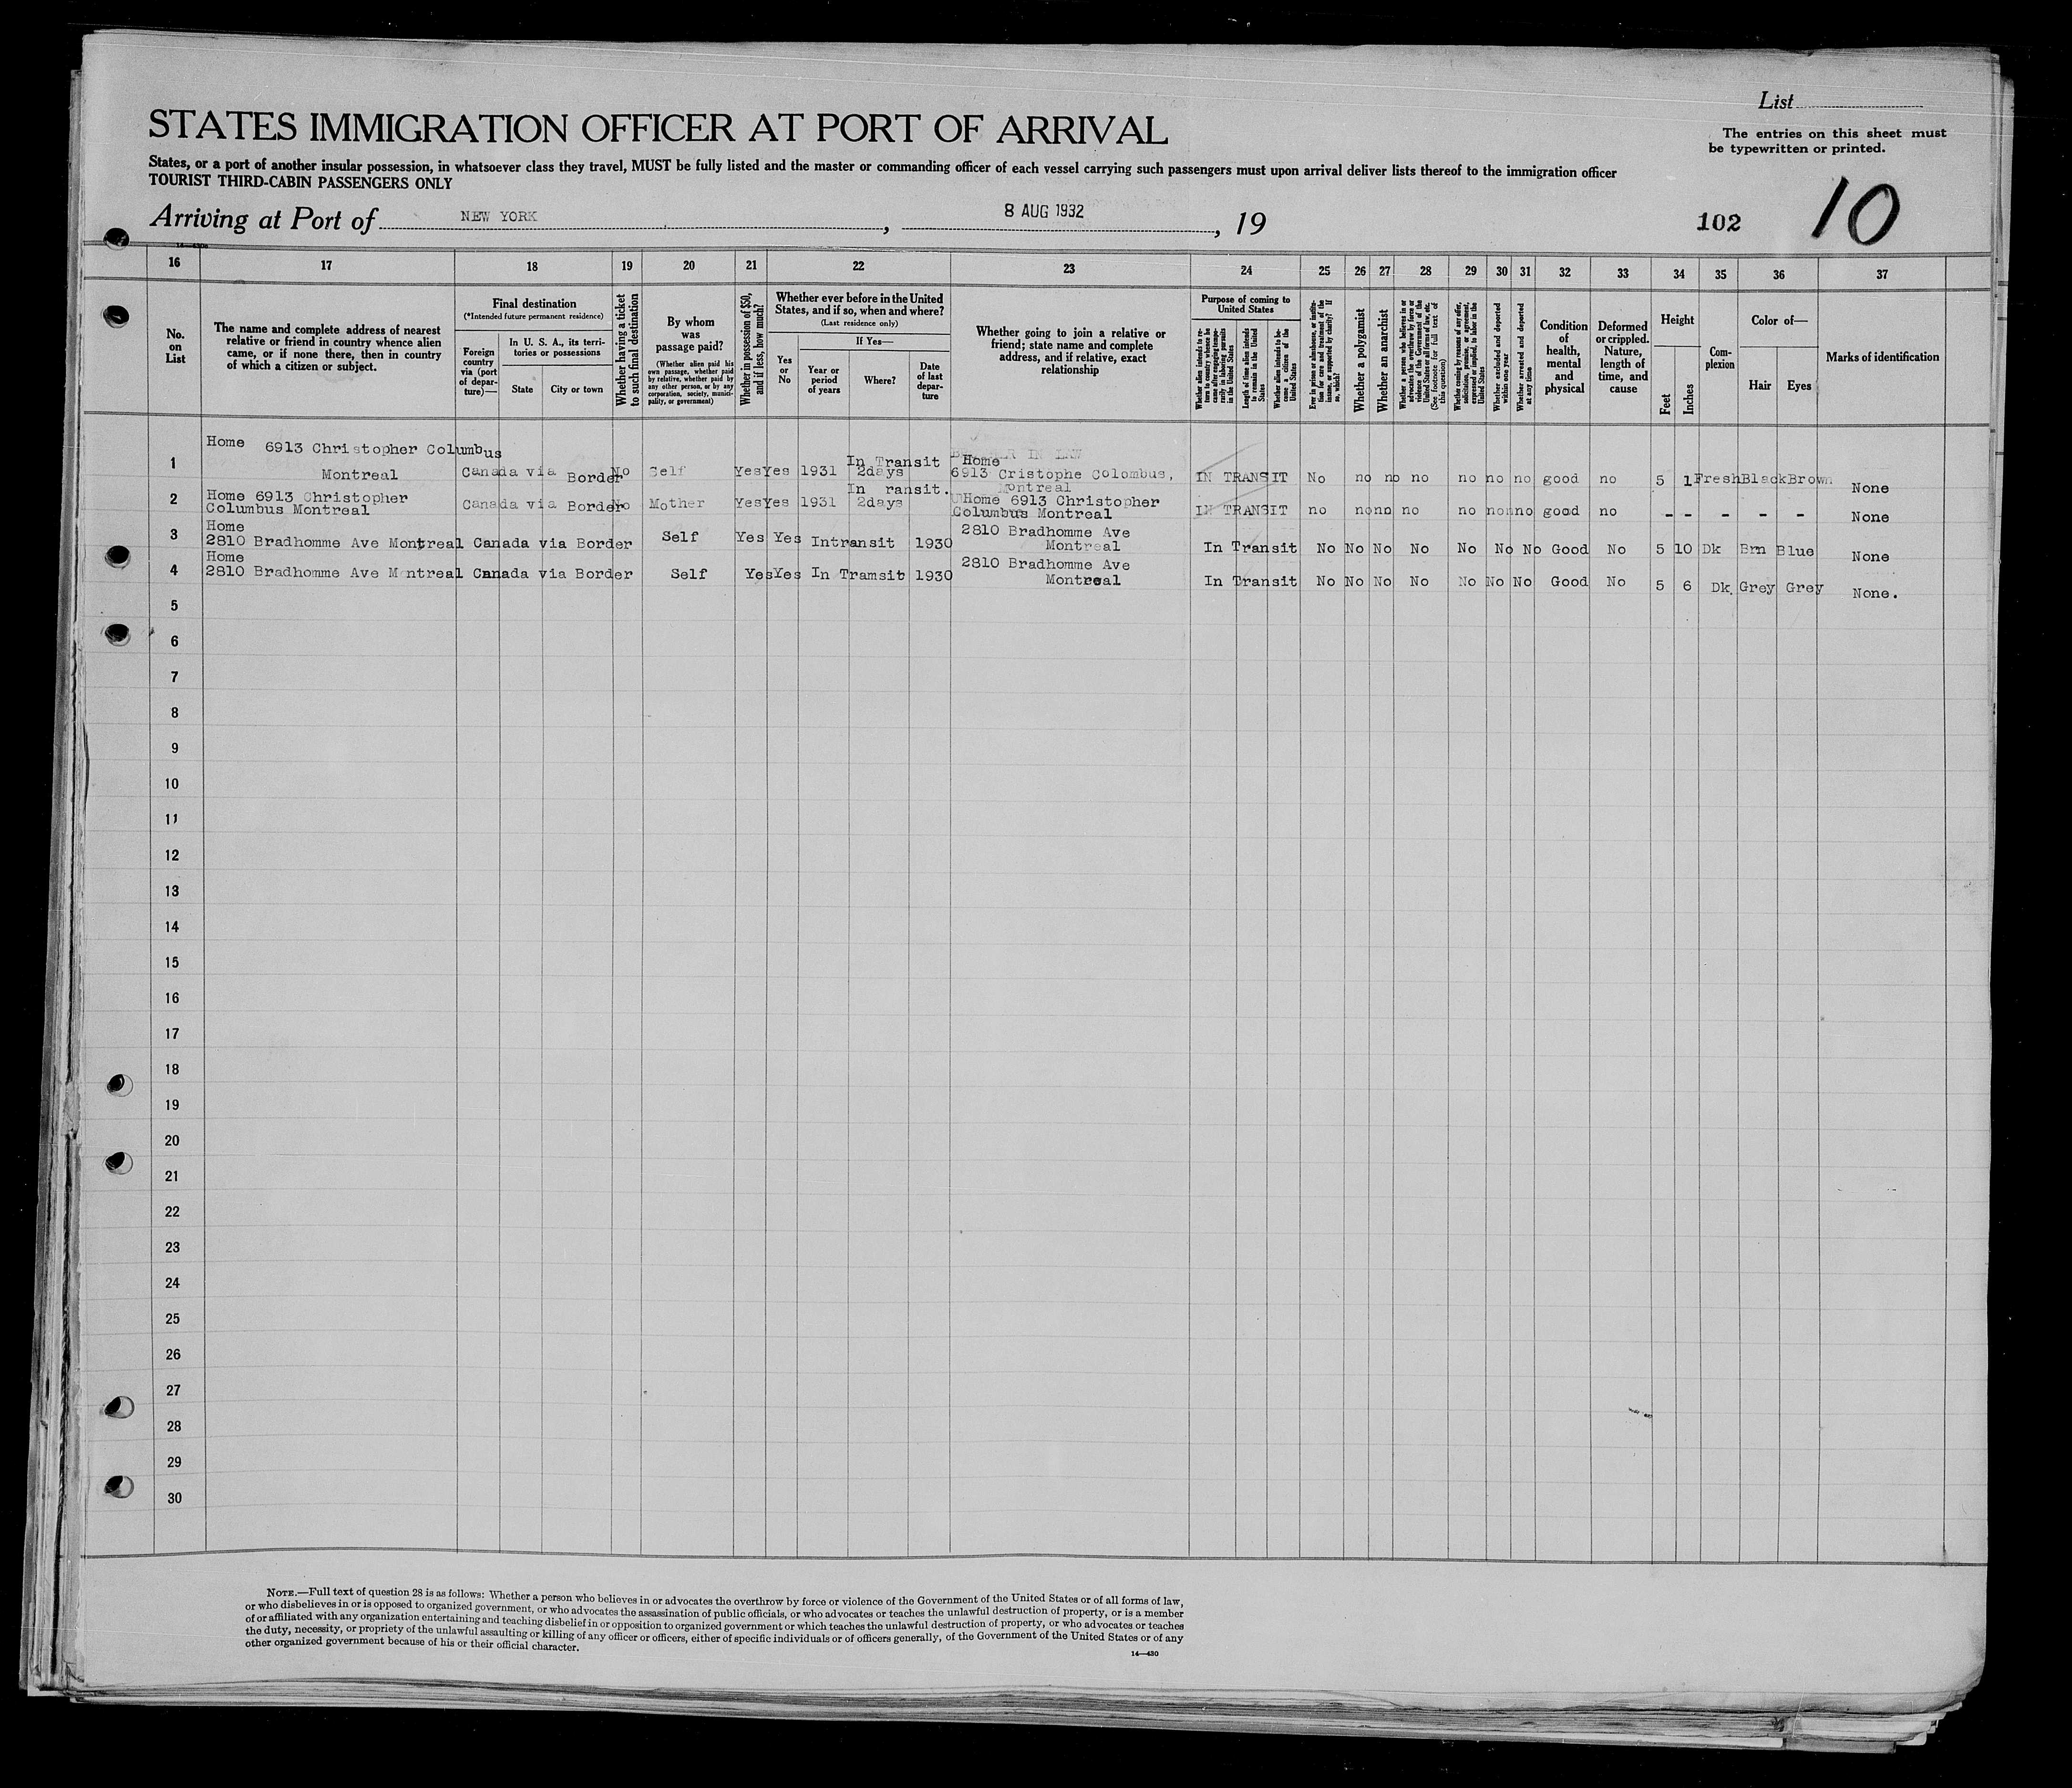 List
STATES IMMIGRATION OFFICER AT PORT OF ARRIVAL
The entries on this sheet must
be typewritten or printed.
States, or a port of another insular possession, in whatsoever class they travel, MUST be fully listed and the master or commanding officer of each vessel carrying such passengers must upon arrival deliver lists thereof to the immigration officer
TOURIST THIRD-CABIN PASSENGERS ONLY
Arriving at Port of NEW YORK, 8 AUG 1932, 19
102 10
16 17 18 19 20 21 22 23 24 25 26 27 28 29 30 31 32 33 34 35 36 37
No. on List
The name and complete address of nearest
relative or friend in country whence alien
came, or if none there, then in country
of which a citizen or subject.
Final destination
(*Intended future permanent residence)
Foreign
country
via (port
of depar-
ture)—
In U. S. A., its terri-
tories or possessions
State City or town
Whether having a ticket
to such final destination
By whom
was
passage paid?
(Whether alien paid his
own passage, whether paid
by relative, whether paid by
any other person, or by any
corporation, society, munici-
pality, or government)
Whether in possession of $50,
and if less, how much?
Whether ever before in the United
States, and if so, when and where?
(Last residence only)
Yes
or
No
If Yes—
Year or
period
of years
Where?
Date
of last
depar-
ture
Whether going to join a relative or
friend; state name and complete
address, and if relative, exact
relationship
Purpose of coming to
United States
Whether alien intends to re-
turn to country whence he
came after engaging tempo-
rarily in laboring pursuits
in the United States
Length of time alien intends
to remain in the United
States
Whether alien intends to be-
come a citizen of the
United States
Ever in prison or almshouse, or institu-
tion for care and treatment of the
insane, or supported by charity? If
so, which?
Whether a polygamist
Whether an anarchist
Whether a person who believes in or
advocates the overthrow by force or
violence of the Government of the
United States or all forms of law, etc.
(See footnote for full text of
this question)
Whether coming by reason of any offer,
solicitation, promise, or agreement,
expressed or implied, to labor in the
United States
Whether excluded and deported
within one year
Whether arrested and deported
at any time
Condition
of
health,
mental
and
physical
Deformed
or crippled.
Nature,
length of
time, and
cause
Height
Feet Inches
Com-
plexion
Color of—
Hair Eyes
Marks of identification
1 Home 6913 Christopher Columbus
Montreal Canada via Border No Self Yes Yes 1931 In Transit 2days Home 6913 Cristophe Colombus, Montreal IN TRANSIT No no no no no no no good no 5 1 Fresh Black Brown None
2 Home 6913 Christopher
Columbus Montreal Canada via Border No Mother Yes Yes 1931 In ransit. 2days Home 6913 Christopher Columbus Montreal IN TRANSIT no no no no no no no good no - - - - - None
3 Home
2810 Bradhomme Ave Montreal Canada via Border Self Yes Yes Intransit 1930 2810 Bradhomme Ave Montreal In Transit No No No No No No No Good No 5 10 Dk Brn Blue None
4 Home
2810 Bradhomme Ave Montreal Canada via Border Self Yes Yes In Tramsit 1930 2810 Bradhomme Ave Montreal In Transit No No No No No No No Good No 5 6 Dk. Grey Grey None.
5
6
7
8
9
10
11
12
13
14
15
16
17
18
19
20
21
22
23
24
25
26
27
28
29
30
NOTE.—Full text of question 28 is as follows: Whether a person who believes in or advocates the overthrow by force or violence of the Government of the United States or of all forms of law,
or who disbelieves in or is opposed to organized government, or who advocates the assassination of public officials, or who advocates or teaches the unlawful destruction of property, or is a member
of or affiliated with any organization entertaining and teaching disbelief in or opposition to organized government or which teaches the unlawful destruction of property, or who advocates or teaches
the duty, necessity, or propriety of the unlawful assaulting or killing of any officer or officers, either of specific individuals or of officers generally, of the Government of the United States or of any
other organized government because of his or their official character.
14—430